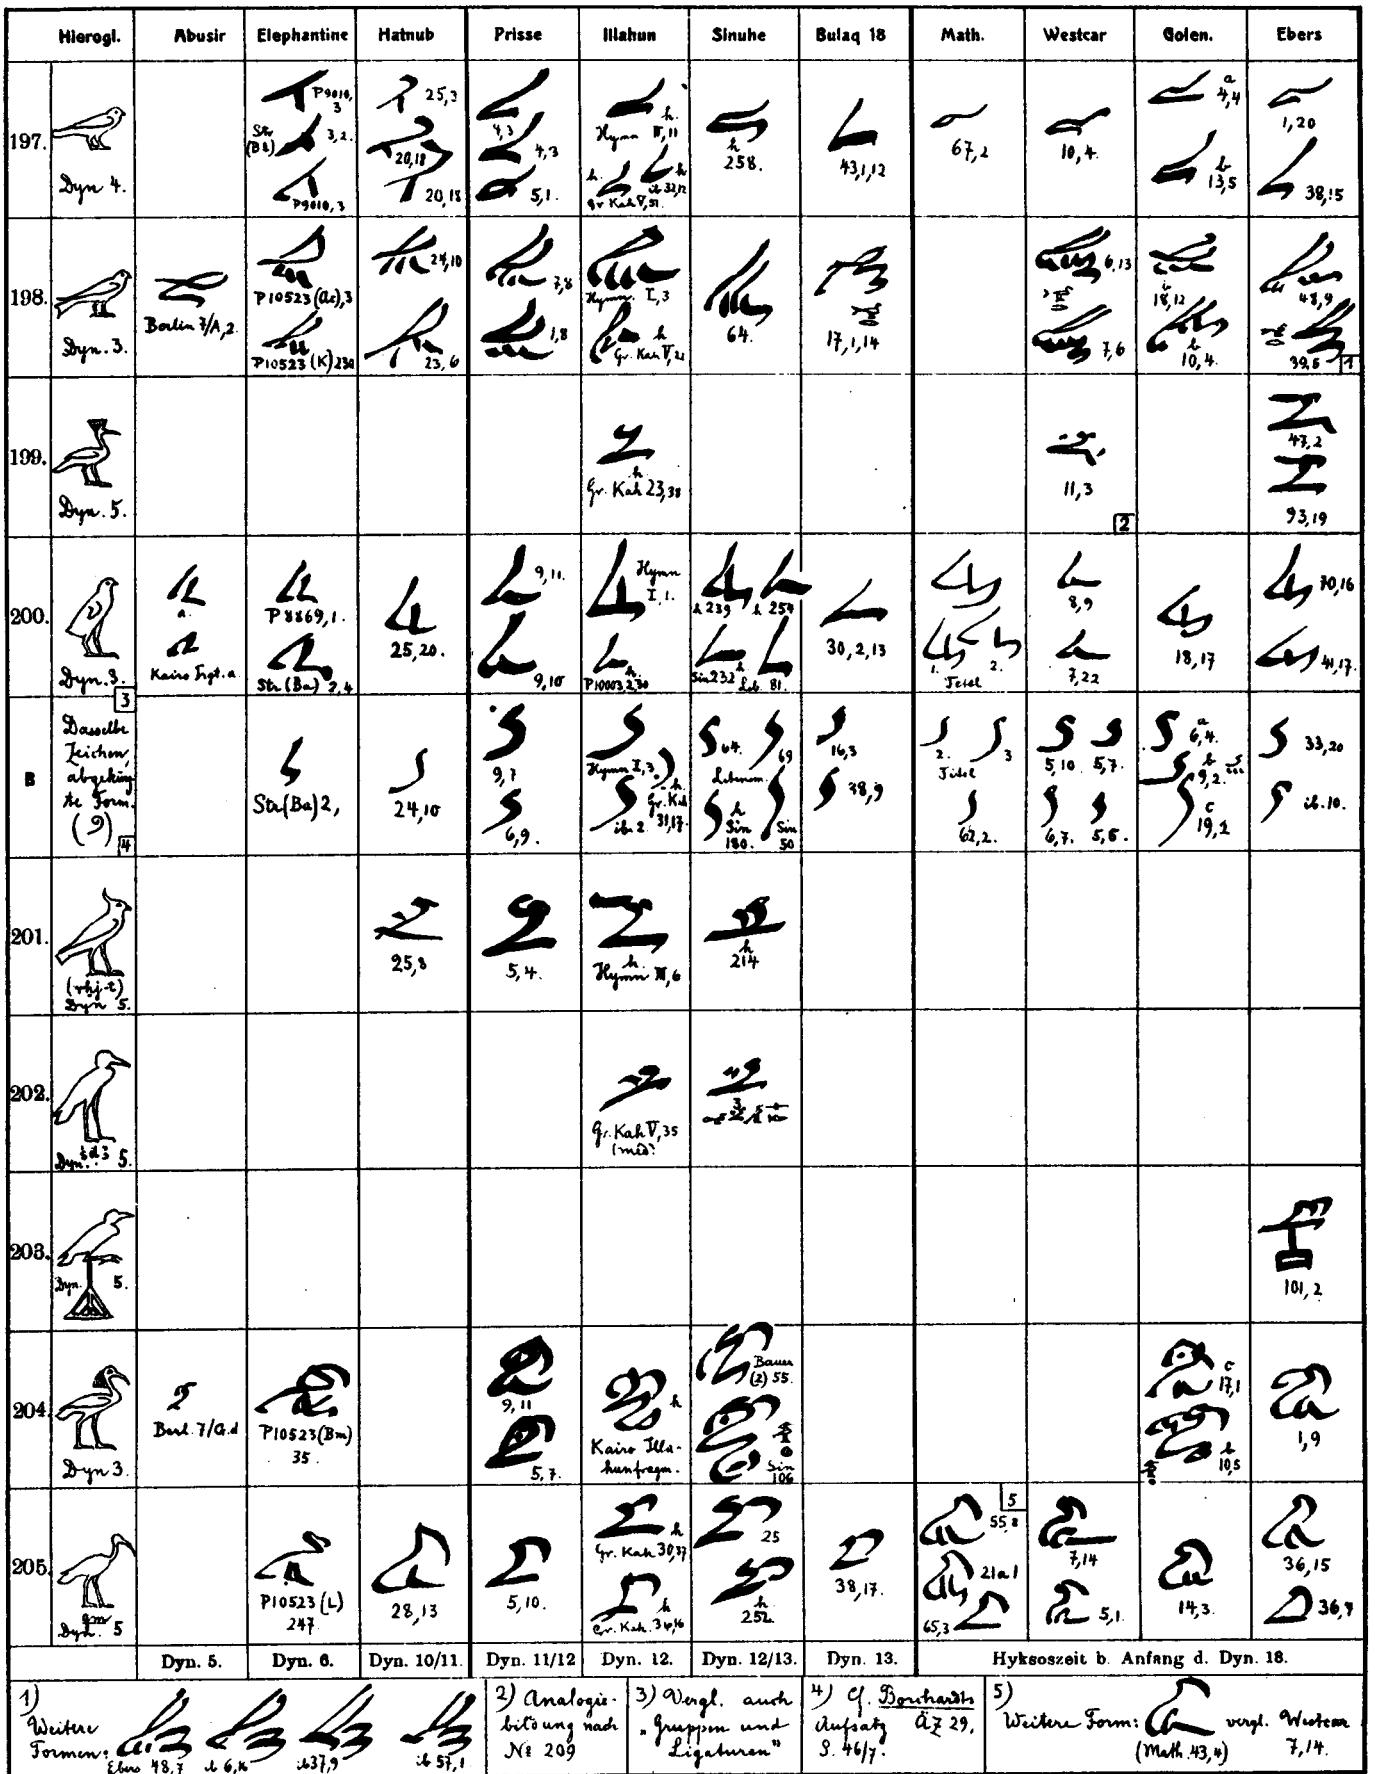 Hierogl. Abusir Elephantine Hatnub Prisse Illahun Sinuhe Bulaq 18 Math. Westcar Golen. Ebers
197.
Dyn 4.
P9010, 3
Str (Ba) 3,2.
P9010,3
25,3
20,18
20,18
4,3
4,3
5,1.
h. Hymn IV,11
h. Gr Kah V,31.
h ib 32,12
h 258.
43,1,12
67,2
10,4.
a 4,4
b 13,5
1,20
38,15
198.
Dyn. 3.
Berlin 7/A,2.
P10523 (Ac),3
P10523 (K) 230
24,10
23,6
7,8
1,8
Hymn. I,3
h Gr. Kah V,21
64.
17,1,14
6,13
7,6
b 18,12
b 10,4.
48,9
39,5
1
199.
Dyn. 5.
h. Gr. Kah 23,38
11,3
2
47,2
93,19
200.
Dyn. 3.
3
a.
Kairo Frgt. a.
P8869,1.
Str (Ba) 2,4
25,20.
9,11.
9,10
Hymn I,1.
h. P10003,2,30
h 239 h 254
Sin 232 h Leb. 81.
30,2,13
1. 2.
Titel
8,9
7,22
18,17
70,16
41,17.
B
Dasselbe
Zeichen,
abgekürz
te Form.
4
Str (Ba) 2,
24,10
9,7
6,9.
Hymn I,3.
ib. 2.
h Gr. Kah 31,17.
64. 69
Lebensm.
h Sin 180. Sin 50
16,3
38,9
2. 3
Titel
62,2.
5,10 5,7.
6,7. 5,5.
a 6,4.
b 9,2.
c 19,2
33,20
ib. 10.
201.
(rhj.t)
Dyn 5.
25,8
5,4.
h. Hymn III,6
h 214
202.
Dyn. 5.
Gr. Kah V,35
(med.
203.
Dyn. 5.
101,2
204.
Dyn 3.
Berl. 7/G.d
P10523 (Bm)
35.
9,11
5,7.
h
Kairo Illa-
hunfragm.
Bauer
(2) 55.
Sin 106
c 17,1
b 10,5
1,9
205.
gm
Dyn. 5
P10523 (L)
247.
28,13
5,10.
h Gr. Kah 30,37
h Gr. Kah. 34,16
25
h 252.
38,17.
5
55,8
21a.1
65,3
7,14
5,1.
14,3.
36,15
36,7
Dyn. 5. Dyn. 6. Dyn. 10/11. Dyn. 11/12 Dyn. 12. Dyn. 12/13. Dyn. 13. Hyksoszeit b. Anfang d. Dyn. 18.
1)
Weitere
Formen:
Ebers 48,7 ib 6,16 ib 37,9 ib 57,1
2) Analogie-
bildung nach
№ 209
3) Vergl. auch
„Gruppen und
Ligaturen"
4) Cf. Borchardts
Aufsatz ÄZ 29.
S. 46/7.
5)
Weitere Form: vergl. Westcar
(Math. 43,4) 7,14.